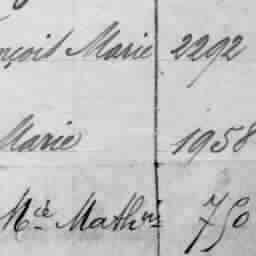 nçois Marie 2292
Marie 1958
Mcé Mathis 750